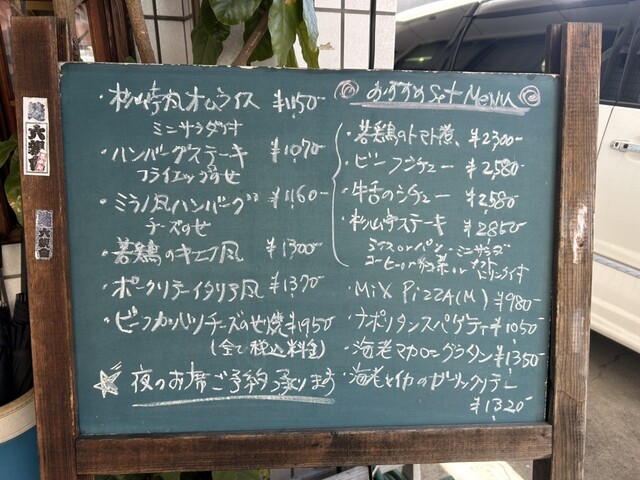 ・杉山亭風オムライス ¥1150-
ミニサラダ付
・ハンバーグステーキ ¥1070-
フライエッグのせ
・ミラノ風ハンバーグ ¥1160-
チーズのせ
・若鶏のキエフ風 ¥1300-
・ポークソテーイタリア風 ¥1370-
・ビーフカツチーズのせ焼 ¥1950
(全て税込料金)
☆夜のお席ご予約承ります
おすすめ Set MENU
・若鶏のトマト煮、¥2300-
・ビーフシチュー ¥2,580-
・牛舌のシチュー ¥2,580-
・杉山亭ステーキ ¥2850-
ライス or パン・ミニサラダ
コーヒー or 紅茶 or
・MIX PIZZA(M) ¥980-
・ナポリタンスパゲティ ¥1050-
・海老マカロニグラタン ¥1350-
・海老とイカのガーリックソテー
¥1320-
六華会
六華會